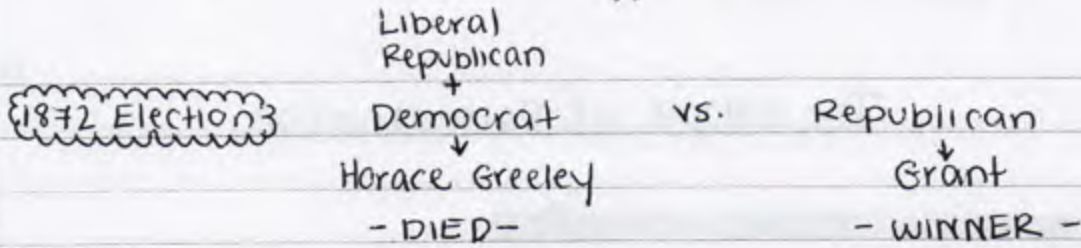 Liberal
Republican
+
1872 Election Democrat vs. Republican
↓ ↓
Horace Greeley Grant
- DIED - - WINNER -